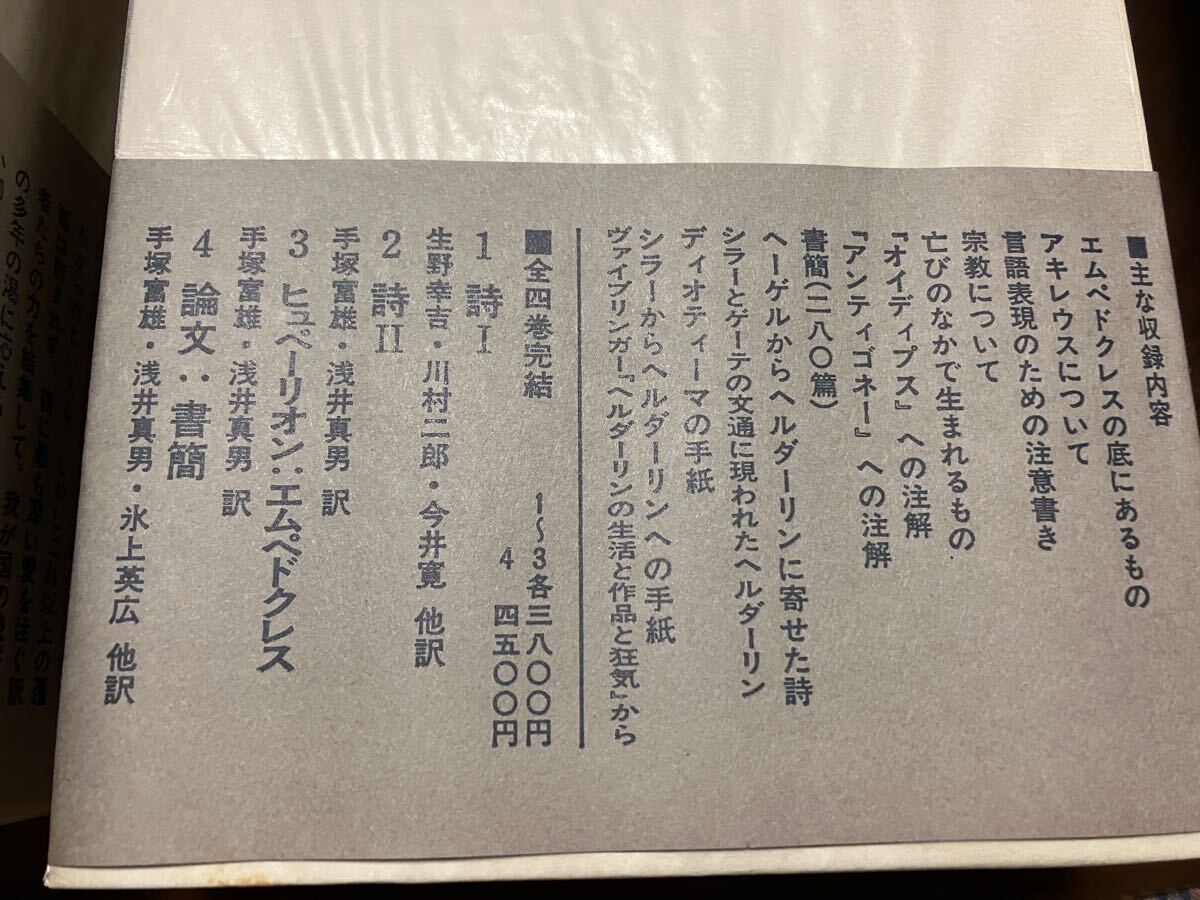 ■主な収録内容
エムペドクレスの底にあるもの
アキレウスについて
言語表現のための注意書き
宗教について
亡びのなかで生まれるもの
『オイディプス』への注解
『アンティゴネー』への注解
書簡(二八〇篇)
ヘーゲルからヘルダーリンに寄せた詩
シラーとゲーテの文通に現われたヘルダーリン
ディオティーマの手紙
シラーからヘルダーリンへの手紙
ヴァイブリンガー『ヘルダーリンの生活と作品と狂気』から
■全四巻完結
1〜3各三八〇〇円
4 四五〇〇円
1 詩I
生野幸吉・川村二郎・今井寛 他訳
2 詩II
手塚富雄・浅井真男 訳
3 ヒュペーリオン:エムペドクレス
手塚富雄・浅井真男 訳
4 論文:書簡
手塚富雄・浅井真男・氷上英広 他訳
者たちの力を結集して、我が国の
の多年の渇に